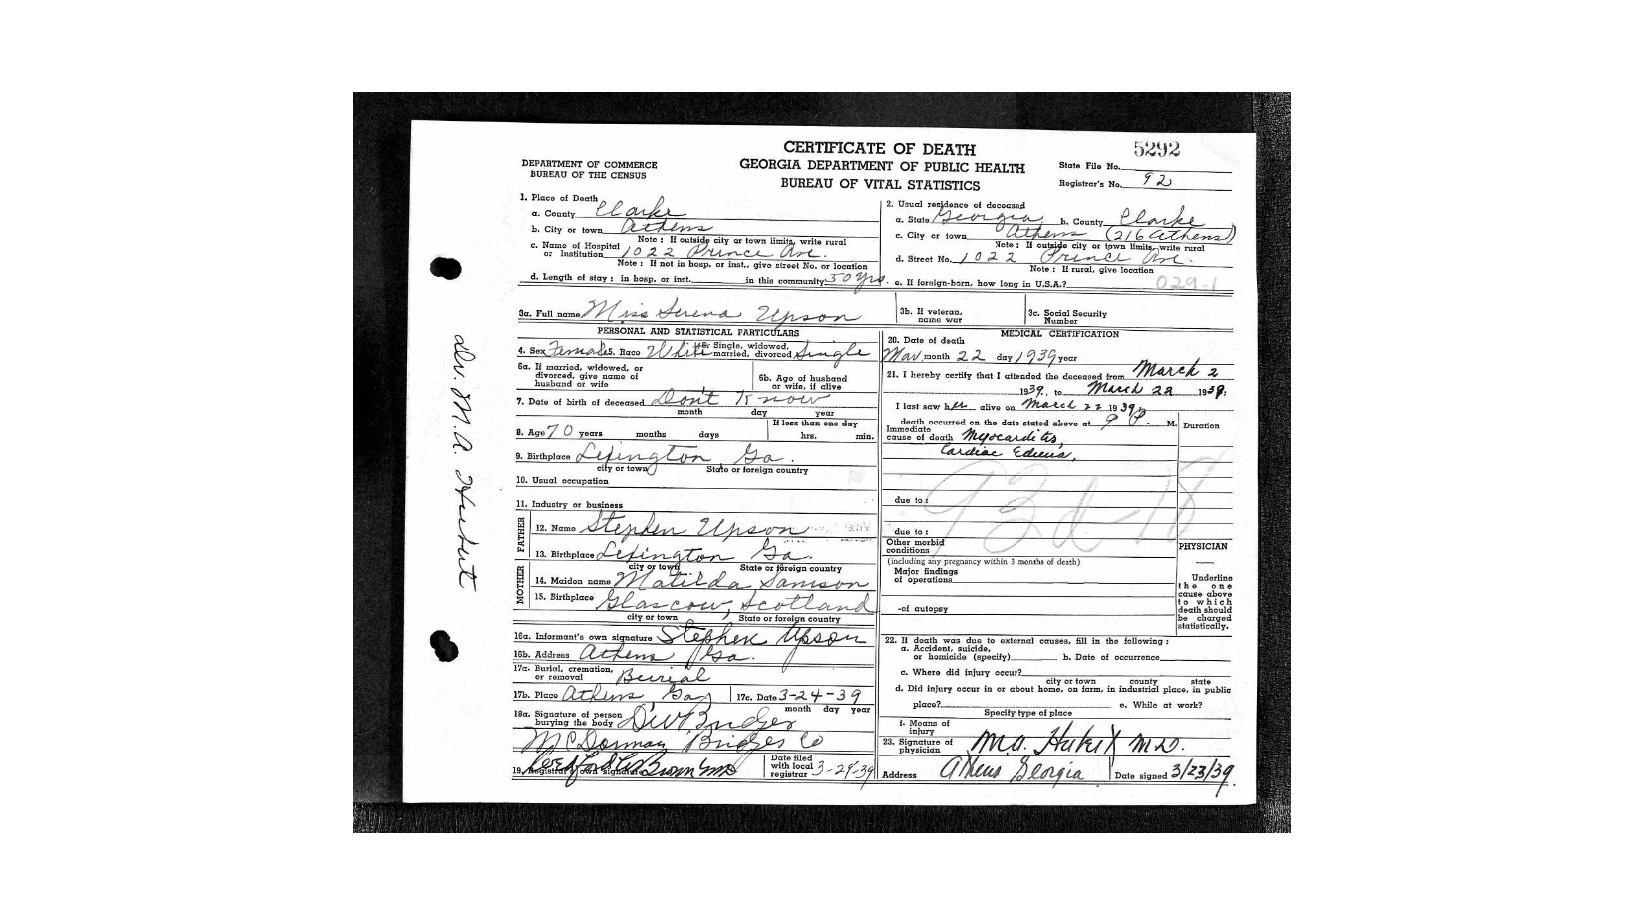 CERTIFICATE OF DEATH
5292
DEPARTMENT OF COMMERCE
BUREAU OF THE CENSUS
GEORGIA DEPARTMENT OF PUBLIC HEALTH
BUREAU OF VITAL STATISTICS
State File No.
Registrar's No. 92
1. Place of Death
a. County Clarke
b. City or town Athens
Note: If outside city or town limits, write rural
c. Name of Hospital
or Institution 1022 Prince Ave.
Note: If not in hosp. or inst., give street No. or location
d. Length of stay: in hosp. or inst. in this community 50 yrs.
2. Usual residence of deceased
a. State Georgia b. County Clarke
c. City or town Athens (216 Athens)
Note: If outside city or town limits, write rural
d. Street No. 1022 Prince Ave.
Note: If rural, give location
e. If foreign-born, how long in U.S.A.? 029-1
3a. Full name Miss Serena Upson
3b. If veteran,
name war
3c. Social Security
Number
PERSONAL AND STATISTICAL PARTICULARS
4. Sex Female 5. Race White 6. Single, widowed,
married, divorced Single
6a. If married, widowed, or
divorced, give name of
husband or wife
6b. Age of husband
or wife, if alive
7. Date of birth of deceased Don't Know
month day year
8. Age 70 years months days
If less than one day
hrs. min.
9. Birthplace Lexington Ga.
city or town State or foreign country
10. Usual occupation
11. Industry or business
FATHER
12. Name Stephen Upson
13. Birthplace Lexington Ga.
city or town State or foreign country
MOTHER
14. Maiden name Matilda Samson
15. Birthplace Glascow, Scotland
city or town State or foreign country
16a. Informant's own signature Stephen Upson
16b. Address Athens, Ga.
17a. Burial, cremation,
or removal Burial
17b. Place Athens, Ga. 17c. Date 3-24-39
month day year
18a. Signature of person
burying the body Bridges
McDorman Bridges Co
19. Registrar's own signature
Date filed
with local
registrar 3-29-39
MEDICAL CERTIFICATION
20. Date of death
Mar. month 22 day 1939 year
21. I hereby certify that I attended the deceased from March 2
1939, to March 22 1939;
I last saw her alive on March 22 1939
death occurred on the date stated above at 9 P. M.
Duration
Immediate
cause of death Myocarditis,
Cardiac Edema,
93d-18
due to:
due to:
Other morbid
conditions
(including any pregnancy within 3 months of death)
Major findings
of operations
-of autopsy
PHYSICIAN
Underline
the one
cause above
to which
death should
be charged
statistically.
22. If death was due to external causes, fill in the following:
a. Accident, suicide,
or homicide (specify) b. Date of occurrence
c. Where did injury occur?
city or town county state
d. Did injury occur in or about home, on farm, in industrial place, in public
place? e. While at work?
Specify type of place
f. Means of
injury
23. Signature of
physician M.A. Hubert M.D.
Address Athens Georgia Date signed 3/23/39.
dr. M.A. Hubert